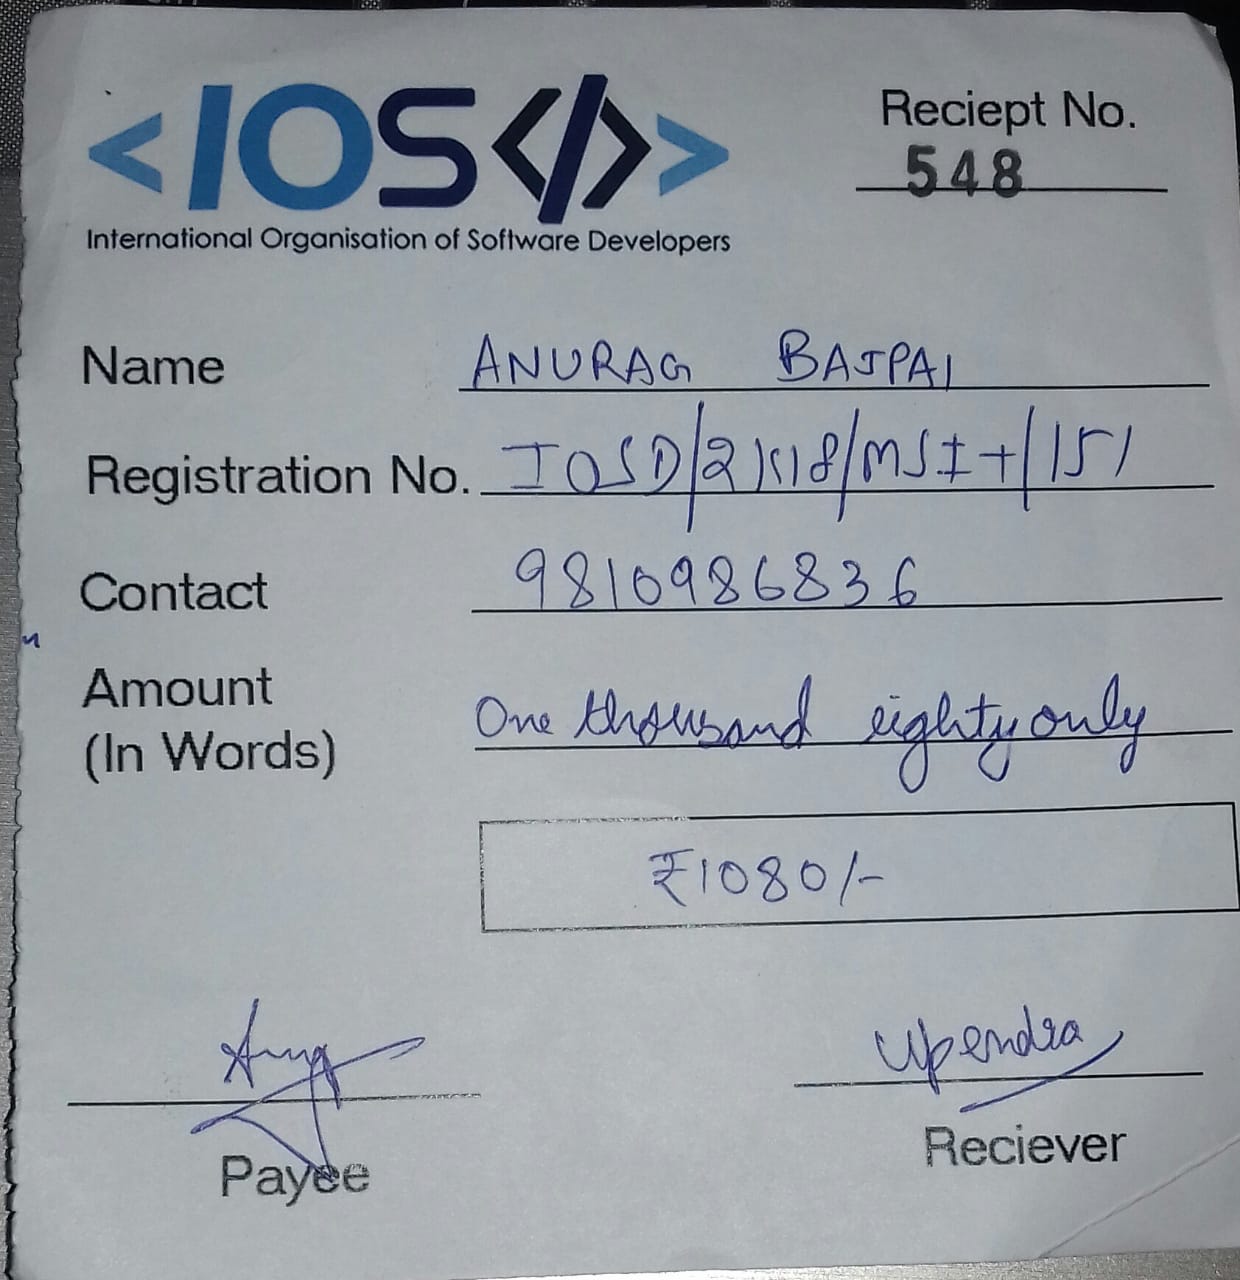 <IOS</>>
International Organisation of Software Developers
Reciept No.
548
Name ANURAG BAJPAI
Registration No. IOSD/2K18/MSIT/151
Contact 9810986836
Amount
(In Words) One thousand eighty only
₹1080/-
Upendra
Payee
Reciever